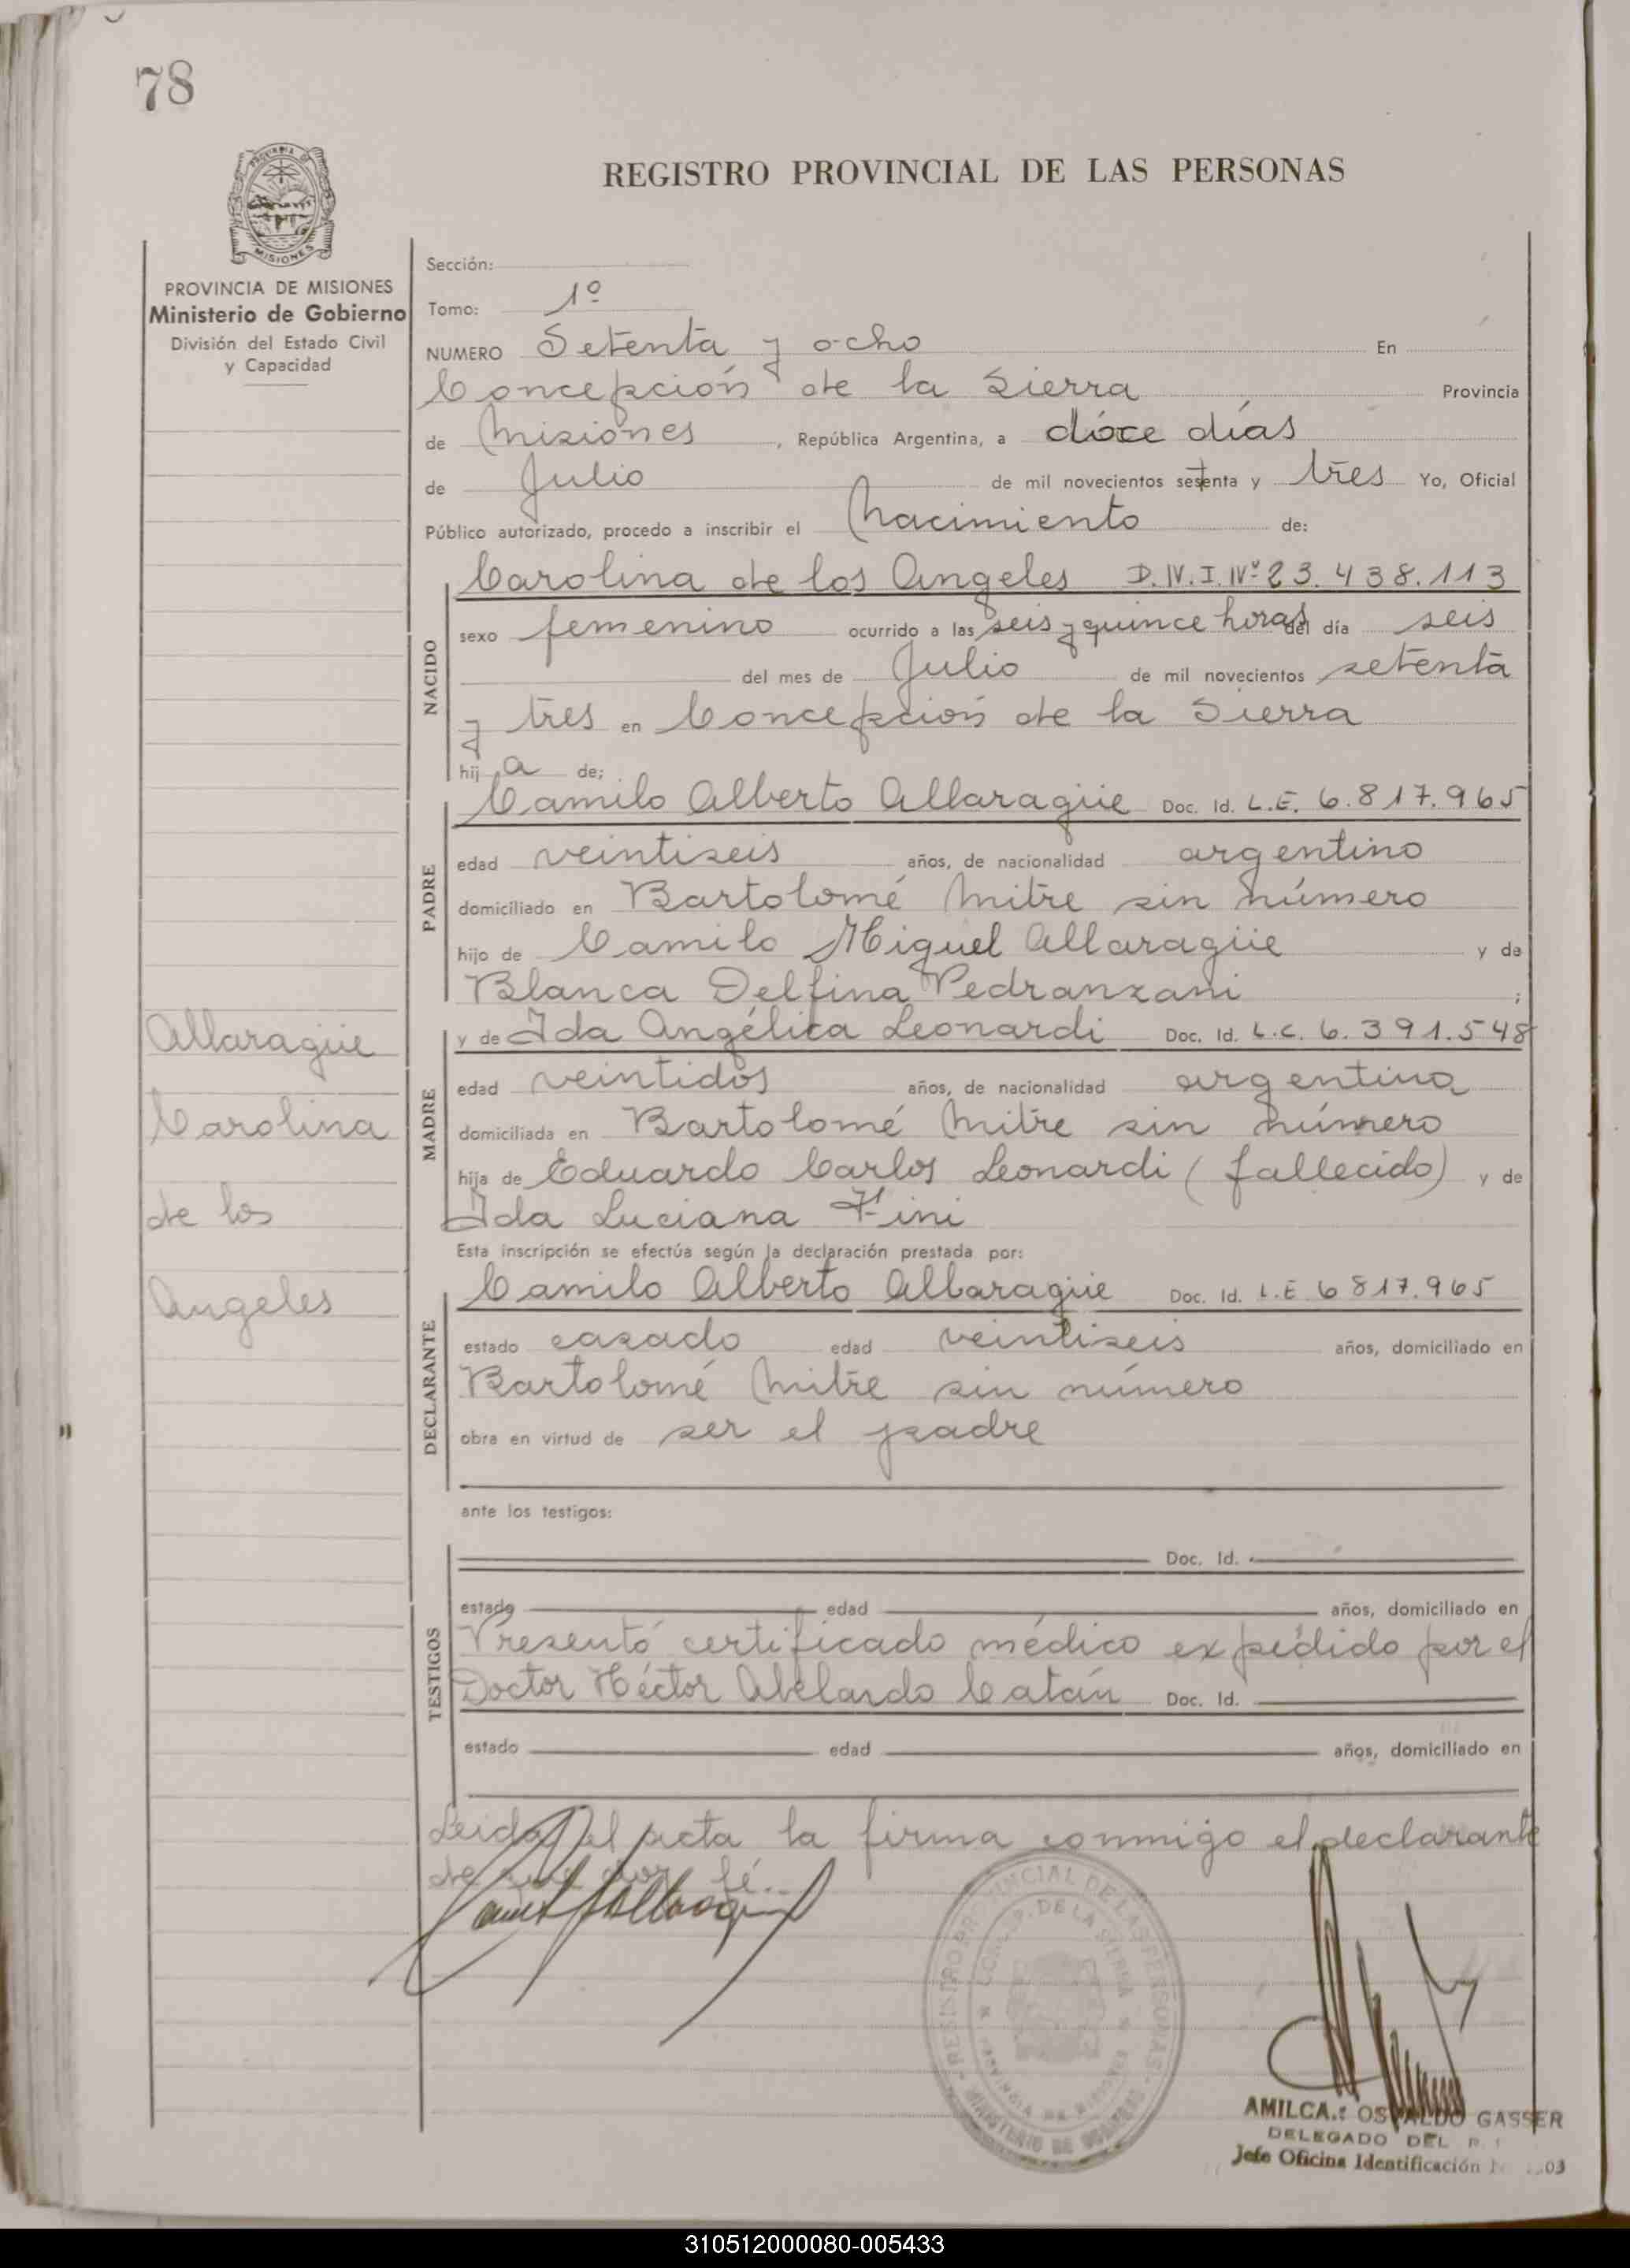 78
REGISTRO PROVINCIAL DE LAS PERSONAS
MISIONES
PROVINCIA DE MISIONES
Ministerio de Gobierno
División del Estado Civil
y Capacidad
Sección:
Tomo: 1º
NUMERO Setenta y ocho En
Concepción de la Sierra Provincia
de Misiones, República Argentina, a dóce días
de Julio de mil novecientos setenta y tres Yo, Oficial
Público autorizado, procedo a inscribir el Nacimiento de:
NACIDO
Carolina de los Angeles D.N.I. Nº 23.438.113
sexo femenino ocurrido a las seis y quince horas del día seis
del mes de Julio de mil novecientos setenta
y tres en Concepción de la Sierra
hij a de;
PADRE
Camilo Alberto Allaragüe Doc. Id. L.E. 6.817.965
edad veintiseis años, de nacionalidad argentino
domiciliado en Bartolomé Mitre sin número
hijo de Camilo Miguel Allaragüe y de
Blanca Delfina Pedranzani ;
MADRE
y de Ida Angélica Leonardi Doc. Id. L.C. 6.391.548
edad veintidós años, de nacionalidad argentina
domiciliada en Bartolomé Mitre sin número
hija de Eduardo Carlos Leonardi (fallecido) y de
Ida Luciana Fini
Allaragüe
Carolina
de los
Angeles
Esta inscripción se efectúa según la declaración prestada por:
DECLARANTE
Camilo Alberto Allaragüe Doc. Id. L.E 6817.965
estado casado edad veintiseis años, domiciliado en
Bartolomé Mitre sin número
obra en virtud de ser el padre
ante los testigos:
TESTIGOS
Doc. Id.
estado edad años, domiciliado en
Presentó certificado médico expedido por el
Doctor Héctor Abelardo Catán Doc. Id.
estado edad años, domiciliado en
Leida el acta la firma conmigo el declarante
de que doy fé.
REGISTRO PROVINCIAL DE LAS PERSONAS
DE LA SIERRA
MINISTERIO DE GOBIERNO
OSVALDO GASSER
DELEGADO DEL
Jefe Oficina Identificación
310512000080-005433